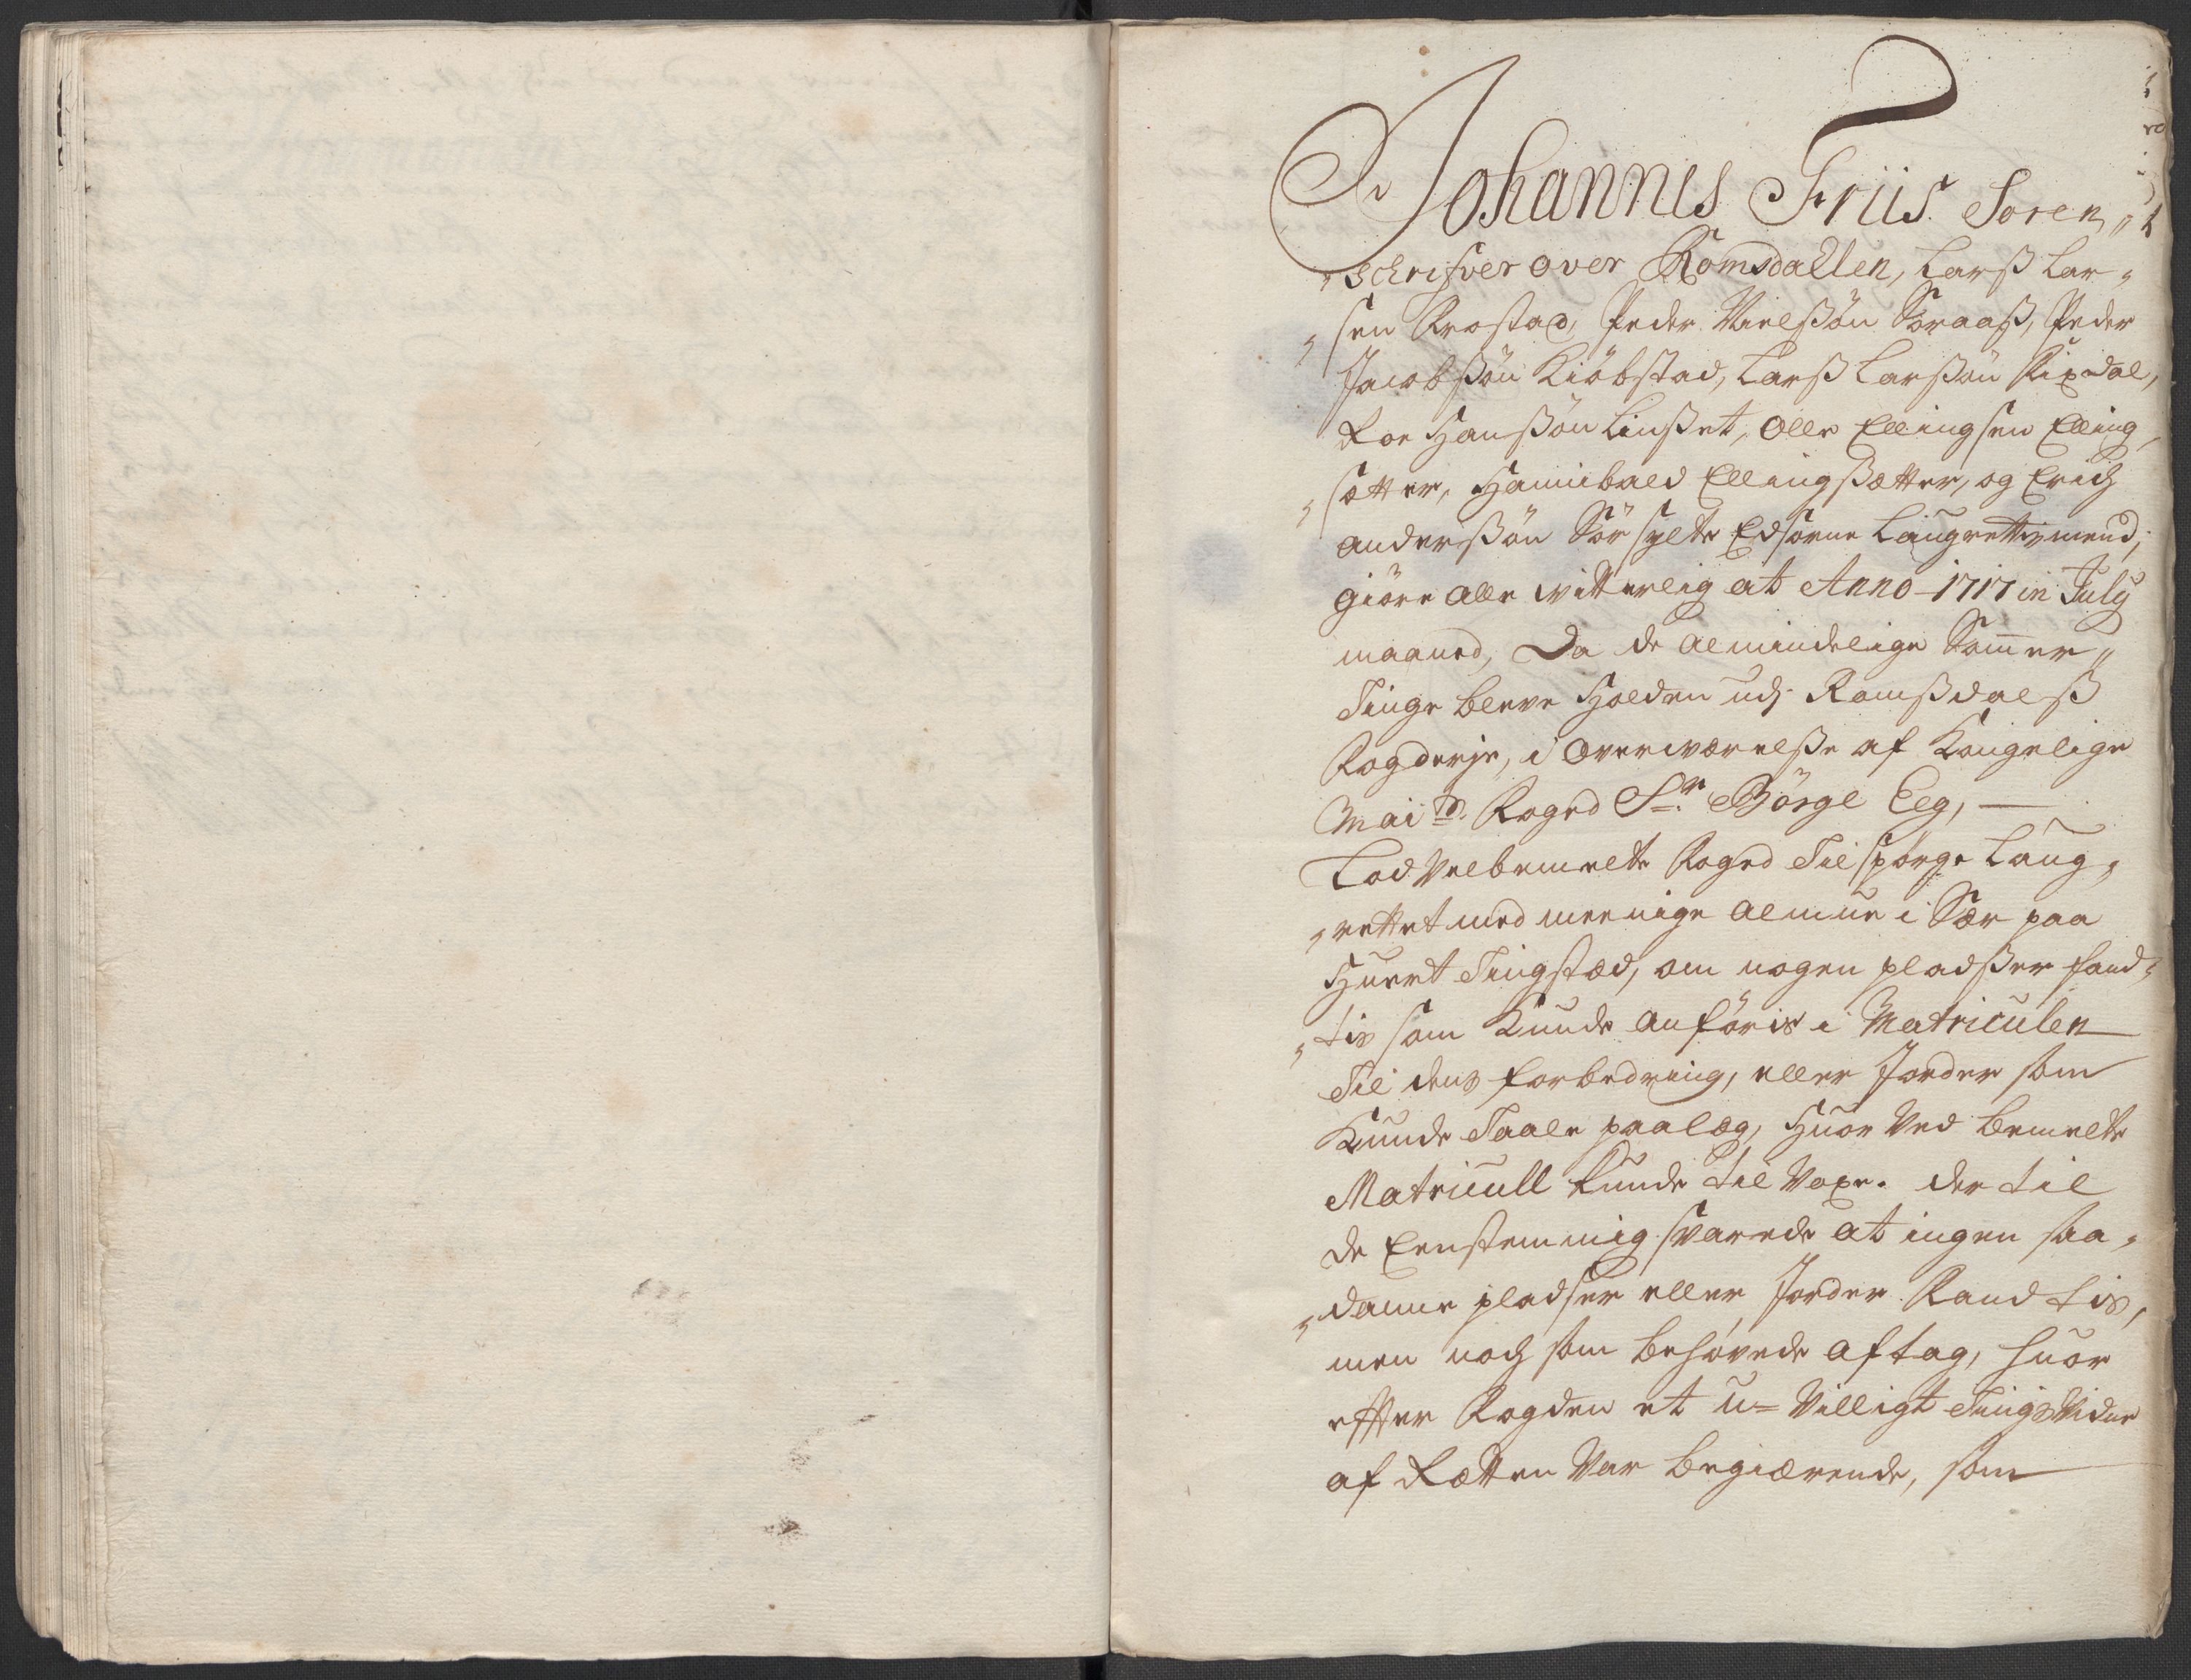 Johannes Friis Soren„
„schrifver over Romsdallen, Larß Lar„
„sen Frostad, Peder Nielßøn Soraaß, Peder
Jacobßøn Kiöbstad, Larß Larßøn Rixdal,
Roe Hanßøn Linset, Olle Ellingsen Elling„
„sætter, Hannibald Ellingßætter, og Erich
Anderßøn Sör Sylte Edsorne Laugrettismend,
Giöre alle witterlig at Anno 1717 in July
maaned, Da de almindelige Som̅er„
Tinge bleve Holden udj Romßdalß
Fogderje, i Overwærelße af Kongelige
Mai:ts Foged Sr Börge Eeg, —
Lod Velbemelte Foged Tilspørge Laug„
„rettet med meenige Almue i Sær paa
Huert Tingstæd, om nogen pladßer fand„
„tis som kunde anföris i Matriculen
Til dens forbedring, eller Jorder som
Kunde Taale paalæg, Huor ved bemelte
Matricull kunde til Voxe. der til
de Eenstemmig svarede at ingen saa„
„danne pladser eller Jorder Fandtis,
men noch som behøvede aftag, huor
effter Fogden et u=Villigt Tings Vidne
af Rætten var begiærende, som